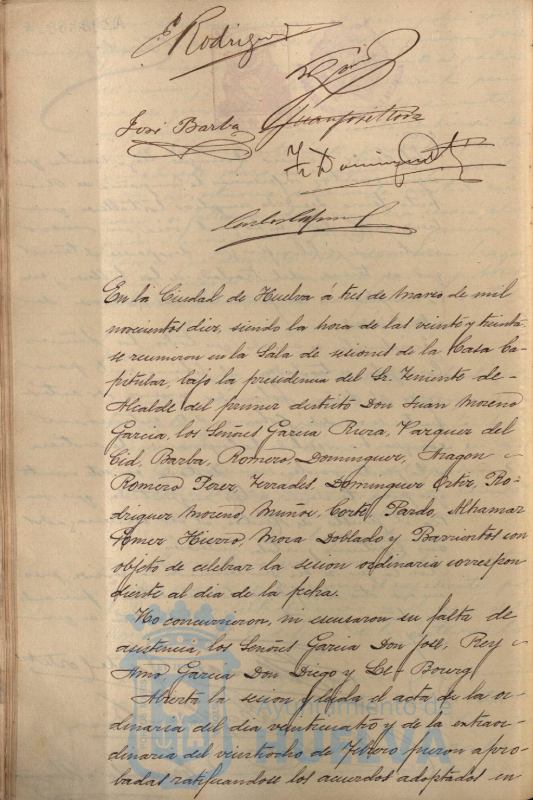 E. Rodriguez
José Barba
Fr. Dominguez
En la Ciudad de Huelva á tres de Marzo de mil
novecientos diez, siendo la hora de las veinte y treinta
se reunieron en la Sala de sesiones de la Casa Ca-
pitular, bajo la presidencia del Sr. Teniente de-
Alcalde del primer distrito Don Juan Moreno
Garcia, los Señores Garcia Ruza, Vazquez del
Cid, Barba, Romero, Dominguez, Aragon
Romero Perez, Terrades, Dominguez Ortiz, Ro-
driguez Moreno, Muñoz, Corto, Pardo, Alhamar
Gomez Hierro, Mora Doblado y Barrientos con
objeto de celebrar la sesion ordinaria correspon
diente al dia de la fecha.
No concurrieron, ni escusaron su falta de
asistencia, los Señores Garcia Don José, Rey
Amo, Garcia Don Diego y Le Bourg
Abierta la sesion y leida el acta de la or-
dinaria del dia veinticuatro y de la extraor-
dinaria del veintiocho de Febrero fueron apro-
badas ratificandose los acuerdos adoptados en
Ayuntamiento de
HUELVA